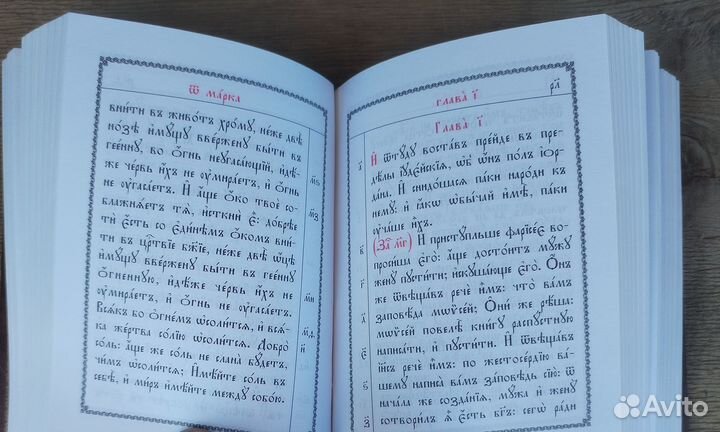 Ѿ ма́рка
вни́ти въ живо́тъ хро́му, не́же двѣ̀
но́зѣ и҆мꙋ́щу вве́ржену бы́ти въ
гее́нну, во ѻ҆́гнь неꙋгаса́ющїй, и҆дѣ́-
же че́рвь и҆́хъ не ᲂу҆мира́етъ, и҆ ѻ҆́гнь
не ᲂу҆гаса́етъ. И҆ а҆́ще ѻ҆́ко твоѐ со-
блажнѧ́етъ тѧ̀, и҆сткнѝ є҆̀: добрѣ́е
тѝ є҆́сть со є҆ди́нѣмъ ѻ҆́комъ вни́-
ти въ црⷭ҇твїе бж҃їе, не́же двѣ̀ ѻ҆́цѣ
и҆мꙋ́щу вве́ржену бы́ти въ гее́нну
ѻ҆́гненную, и҆дѣ́же че́рвь и҆́хъ не
ᲂу҆мира́етъ, и҆ ѻ҆́гнь не ᲂу҆гаса́етъ.
Всѧ́къ бо ѻ҆гне́мъ ѡ҆соли́тсѧ, и҆ всѧ́-
ка же́ртва со́лїю ѡ҆соли́тсѧ. Добро̀
со́ль: а҆́ще же со́ль не слана̀ бꙋ́детъ,
чи́мъ ѡ҆соли́тсѧ; И҆мѣ́йте со́ль въ
себѣ̀, и҆ ми́ръ и҆мѣ́йте междꙋ̀ собо́ю.
м҃ѕ
м҃з
м҃и
м҃д
н҃
глава̀ і҃
р҃л
Глава̀ і҃
а҃ И҆ ѿтꙋ́дꙋ воста́въ прїи́де въ пре-
дѣ́лы і҆ꙋде́йскїѧ, ѡ҆б̾ ѻ҆́нъ по́лъ і҆ѻр-
да́на. И҆ снидо́шасѧ па́ки наро́ди къ
немꙋ̀: и҆ ꙗ҆́кѡ ѡ҆бы́чай и҆мѣ̀, па́ки
ᲂу҆ча́ше и҆́хъ.
в҃ (За̑ м҃г) И҆ пристꙋ́пльше фарїсе́є во-
проси́ша є҆го̀: а҆́ще досто́итъ мꙋ́жу
г҃ женꙋ̀ пꙋсти́ти; и҆скꙋша́юще є҆го̀. Ѻ҆́нъ
же ѿвѣща́въ речѐ и҆̀мъ: что̀ ва́мъ
д҃ заповѣ́да мѡѷсе́й; Ѻ҆ни́ же рѣ́ша:
мѡѷсе́й повелѣ̀ кни́гꙋ распꙋ́стнꙋю
є҃ написа́ти, и҆ пꙋсти́ти. И҆ ѿвѣща́въ
і҆и҃съ речѐ и҆̀мъ: по жестосе́рдїю ва́-
ѕ҃ шемꙋ написа̀ ва́мъ за́повѣдь сїю̀: ѿ
нача́ла же созда́нїѧ, мꙋ́жа и҆ женꙋ̀
з҃ сотвори́лъ ѧ҆̀ є҆́сть бг҃ъ: сегѡ̀ ра́ди
Avito